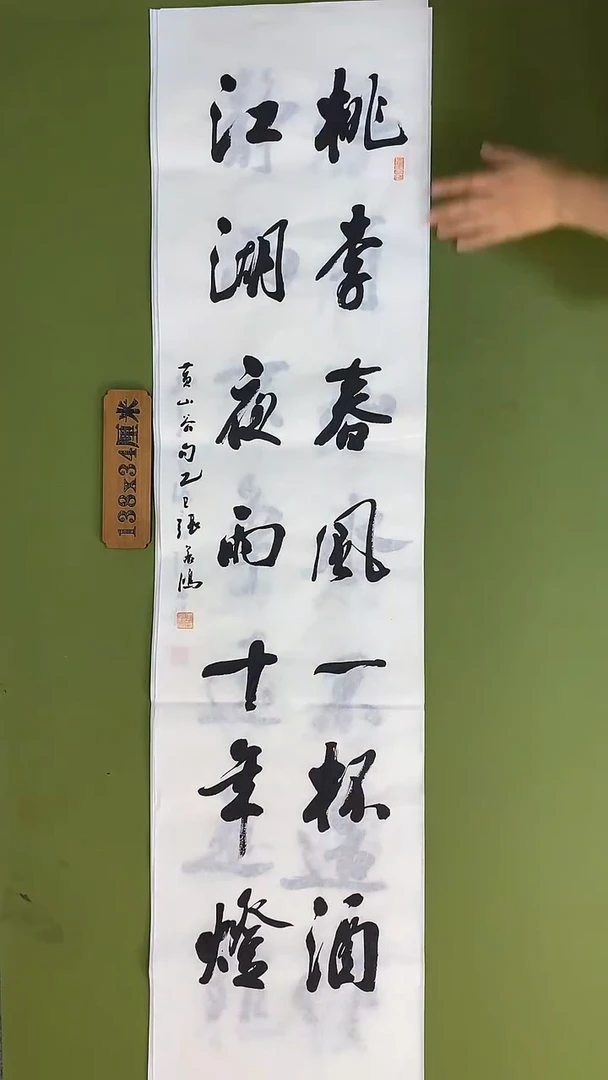 桃李春风一杯酒
江湖夜雨十年燈
黄山谷句乙巳張
138x34厘米